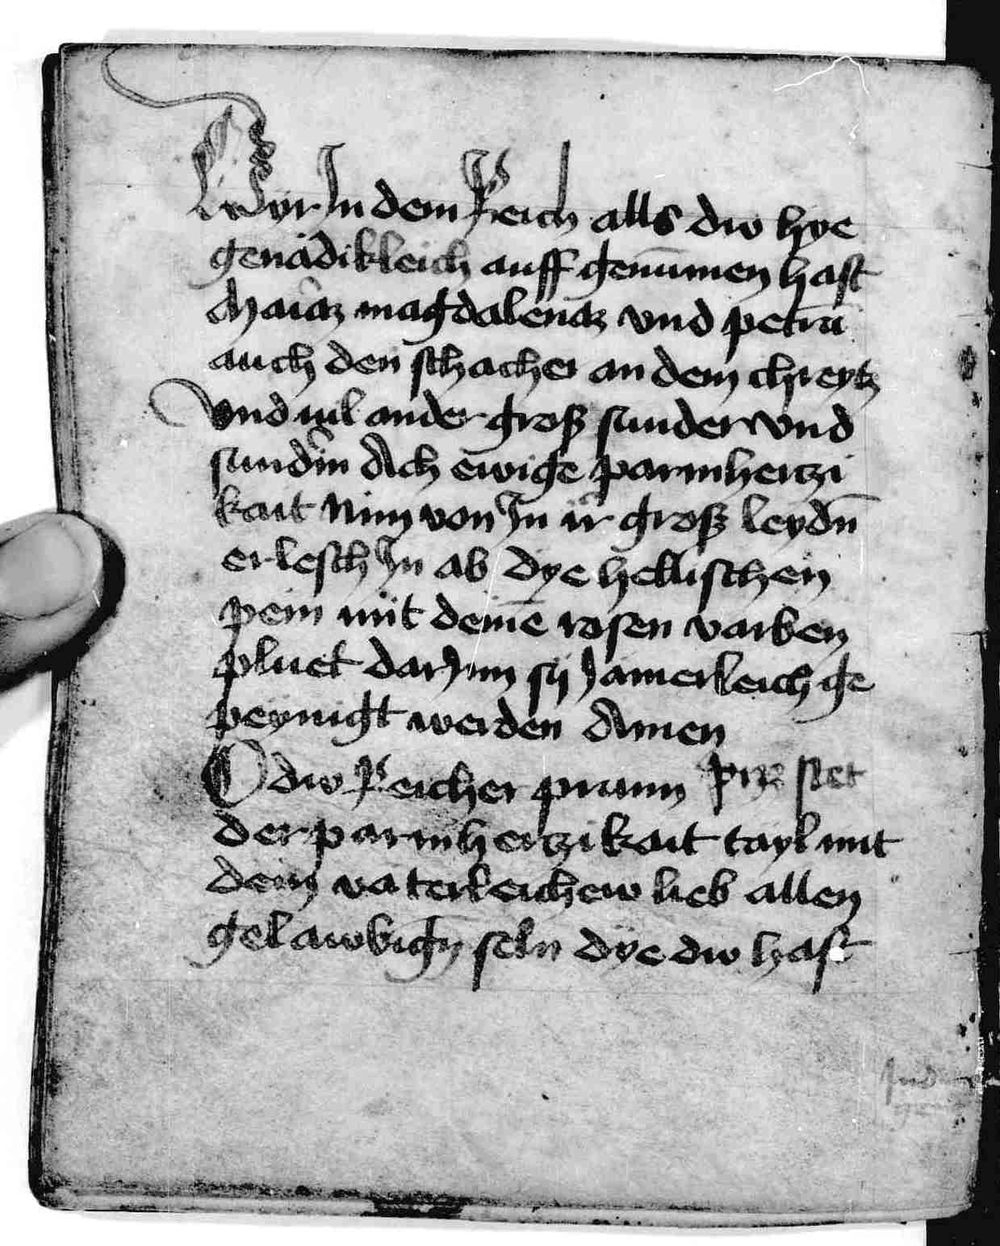 Wyr In dem Reich alls diw hye
genädikleich auff genūmen hast
Mariaz magdalenaz vnd petrū
auch den schacher an dem chreytz
Vnd uil ander gross sunder vnd
sundrin Ach ewige parmhertzi
kait Nim von In ir gross leydn̄
erlesch In ab dye hellischen
pein mit deinē rosen varben
pluet dar Inn sy Jamerleich ge
peynigt werden Amen
O diw Reicher prunn
der parmhertzikait tayl mit
dein vaterleichew lieb allen
gelawbign̄ seln dye diw hast